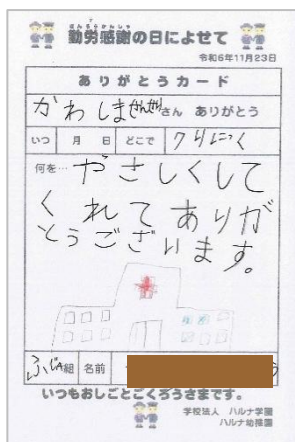 勤労感謝の日によせて
きんろうかんしゃ
令和6年11月23日
ありがとうカード
かわしませんせいさん ありがとう
いつ 月 日 どこで クリにっく
何を… やさしくして
くれてありが
とうございます。
ふじA組 名前
いつもおしごとごくろうさまです。
学校法人 ハルナ学園
ハルナ幼稚園